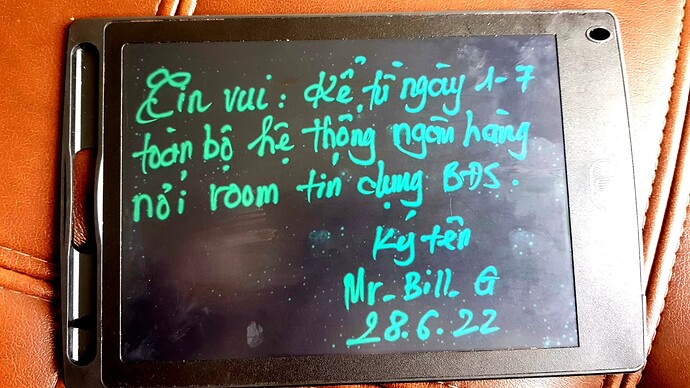 Tin vui: Kể từ ngày 1-7
toàn bộ hệ thống ngân hàng
nới room tín dụng BĐS.
Ký tên
Mr_Bill_G
28.6.22